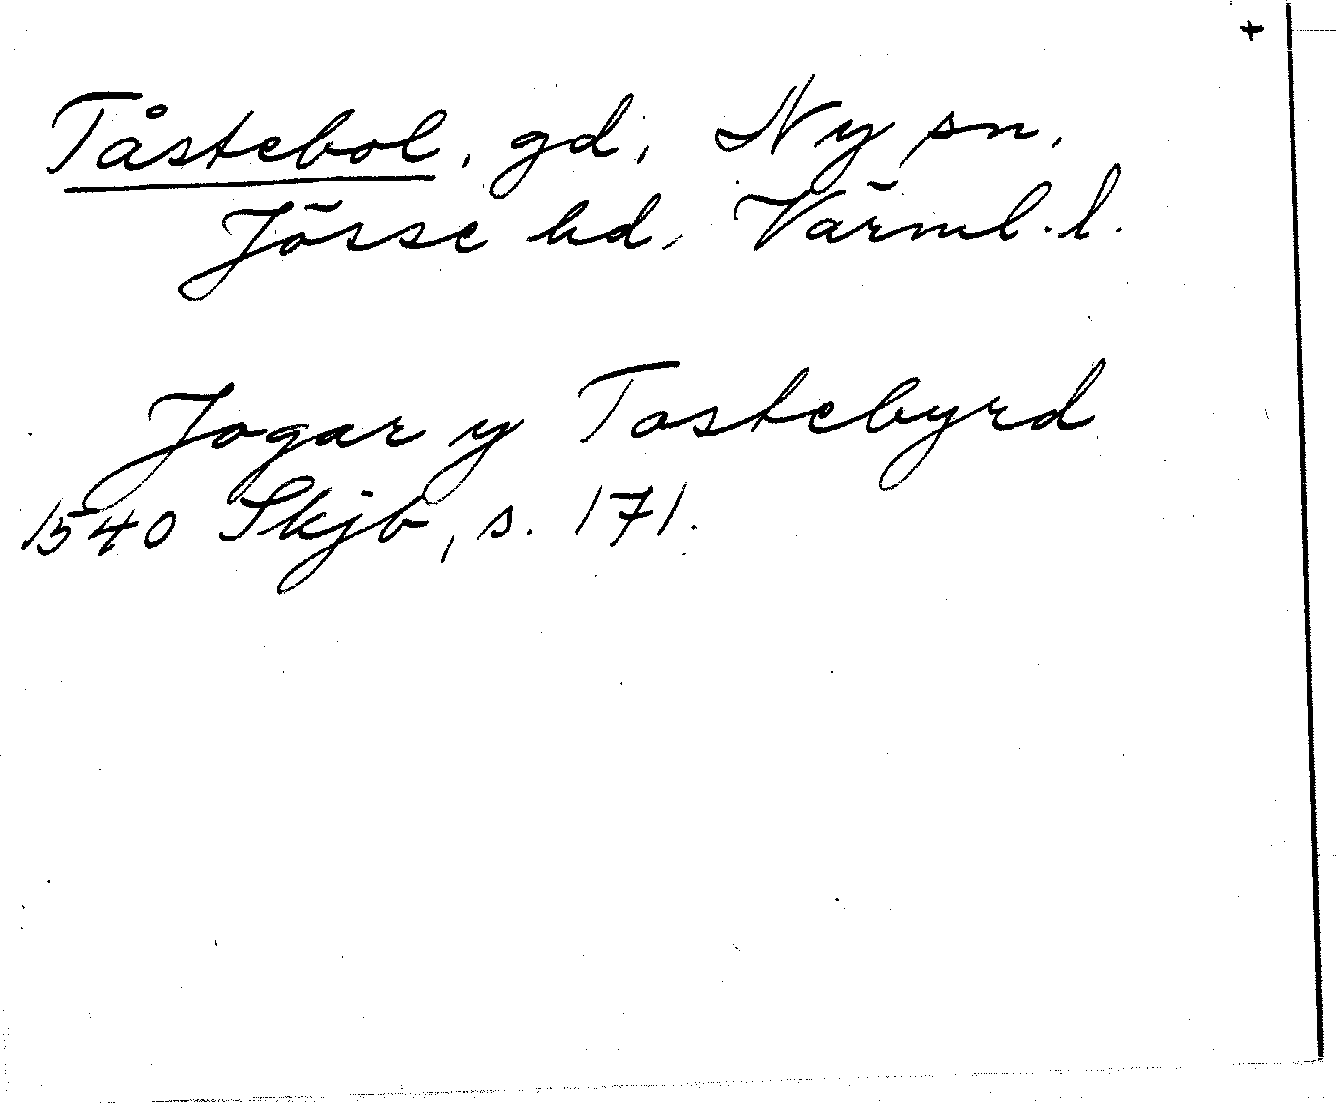 +
Tåstebol, gd, Ny sn,
Jösse hd, Värml. l.
Jogar y Tostebyrd
1540 Skjb, s. 171.